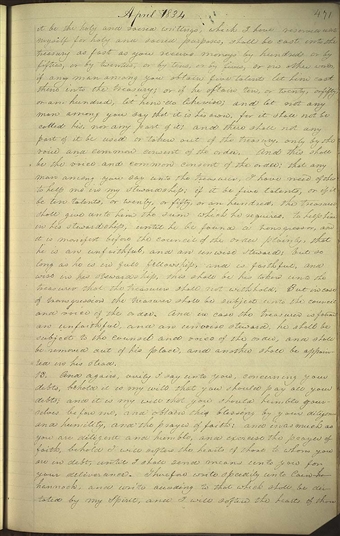 April 1834 471
it be the holy and sacred writings, which I have
myself for holy and sacred purposes, shall be cast into the
treasury as fast as you receive moneys by hundreds or by
fifties, or by twenties, or by tens, or by fives; in other words
if any man among you obtain five talents let him cast
them into the Treasury; or if he obtain ten, or twenty, or fifty,
or an hundred, let him do likewise; and let not any
man among you say that it is his own, for it shall not be
called his, nor any part of it; and there shall not any
part of it be used or taken out of the Treasury, only by the
voice and common consent of the order. And this shall
be the voice and common consent of the order; that any
man among you say unto the treasurer, I have need of this
to help me in my stewardship; if it be five talents, or if it
be ten talents, or twenty, or fifty, or an hundred. The treasurer
shall give unto him the sum which he requires, to help him
in his stewardship, until he be found a transgressor, and
it is manifest before the council of the order plainly, that
he is an unfaithful and an unwise steward; but so
long as he is in full fellowship, and is faithful, and
wise in his stewardship, this shall be his token unto the
treasurer that the treasurer shall not withhold. But in case
of transgression the treasurer shall be subject unto the council
and voice of the order. And in case the treasurer is found
an unfaithful, and an unwise steward, he shall be
subject to the counsel and voice of the order, and shall
be removed out of his place, and another shall be appoin-
ted in his stead.
And again, verily I say unto you, concerning your
debts, behold it is my will that you should pay all your
debts; and it is my will that you should humble your-
selves before me, and obtain this blessing by your diligence
and humility, and the prayer of faith; and inasmuch as
you are diligent and humble, and exercise the prayer of
faith, behold I will soften the hearts of those to whom you
are in debt, until I shall send means unto you for
your deliverance. Therefore write speedily unto
and write according to that which shall be dic-
tated by my Spirit, and I will soften the hearts of those